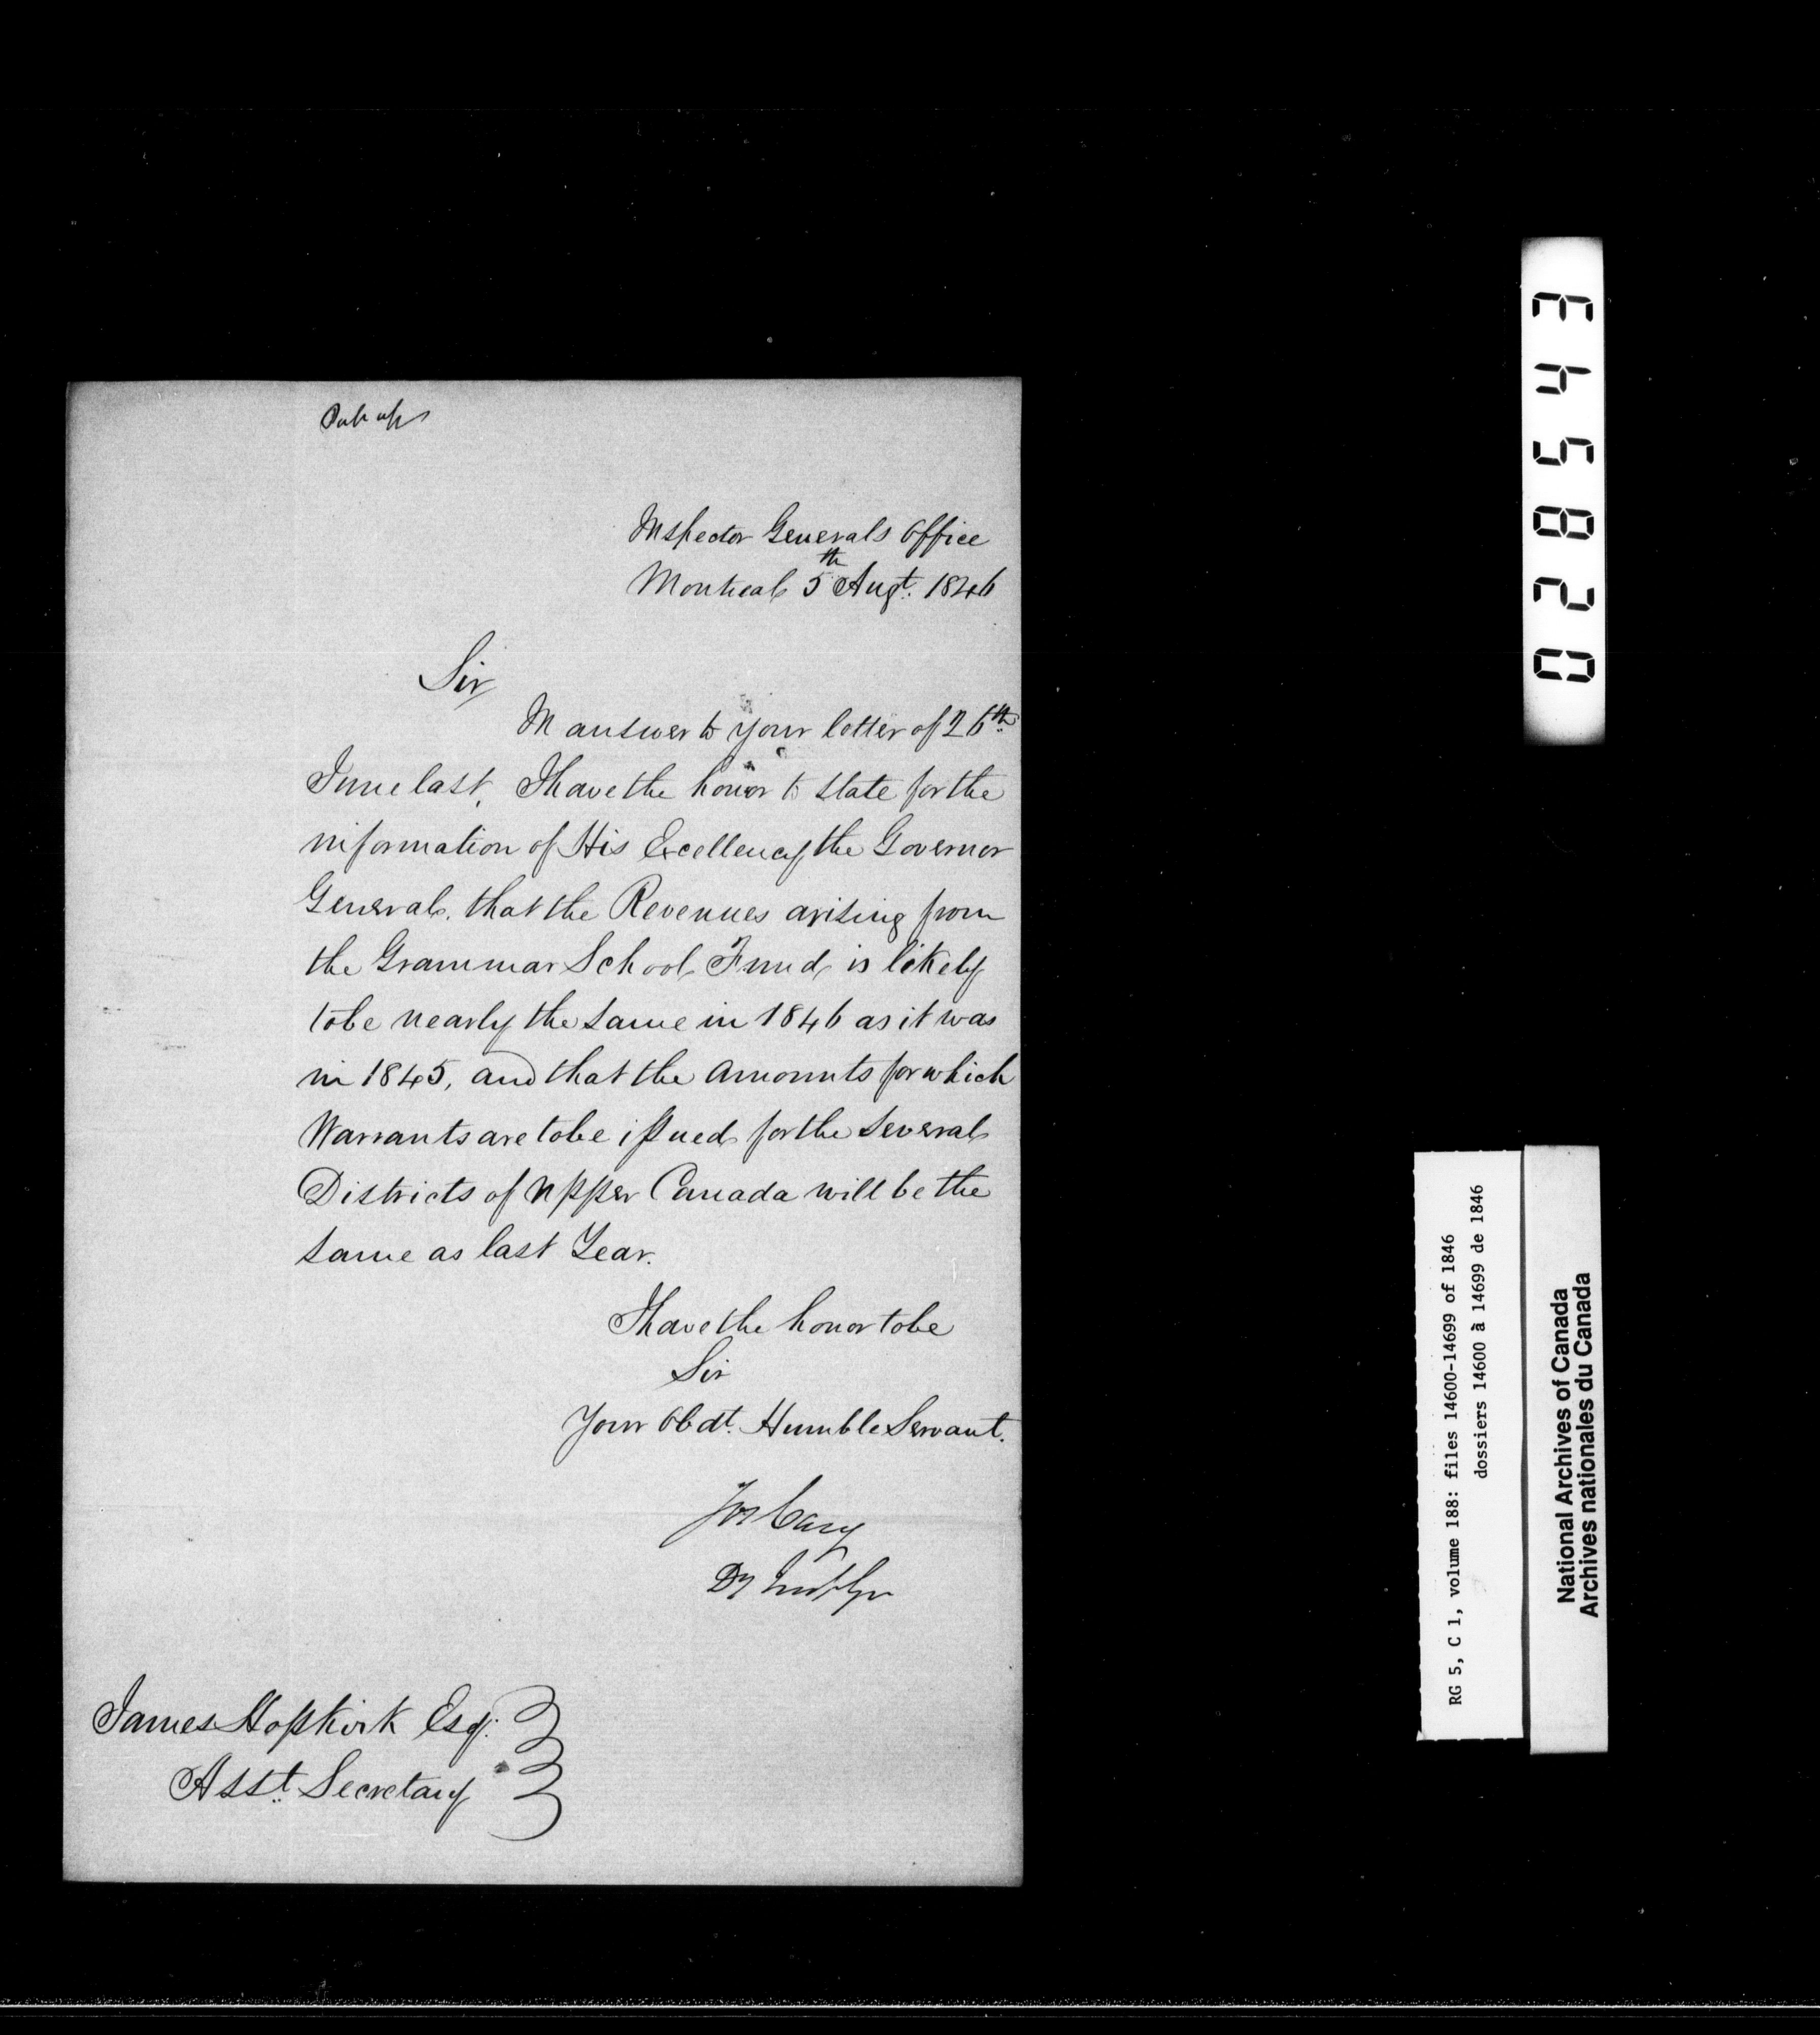 Put up
Inspector Generals Office
Montreal 5th Augt. 1846
Sir,
In answer to your letter of 26th
June last, I have the honor to state for the
information of His Excellency the Governor
General, that the Revenues arising from
the Grammar School Fund is likely
to be nearly the same in 1846 as it was
in 1845, and that the amounts for which
Warrants are to be issued for the several
Districts of Upper Canada will be the
same as last Year.
I have the honor to be
Sir
Your Obdt. Humble Servant.
Jos Cary
Dy Insp Gen
James Hopkirk Esq.
Asst. Secretary
028543
RG 5, C 1, volume 188: files 14600-14699 of 1846
dossiers 14600 à 14699 de 1846
National Archives of Canada
Archives nationales du Canada